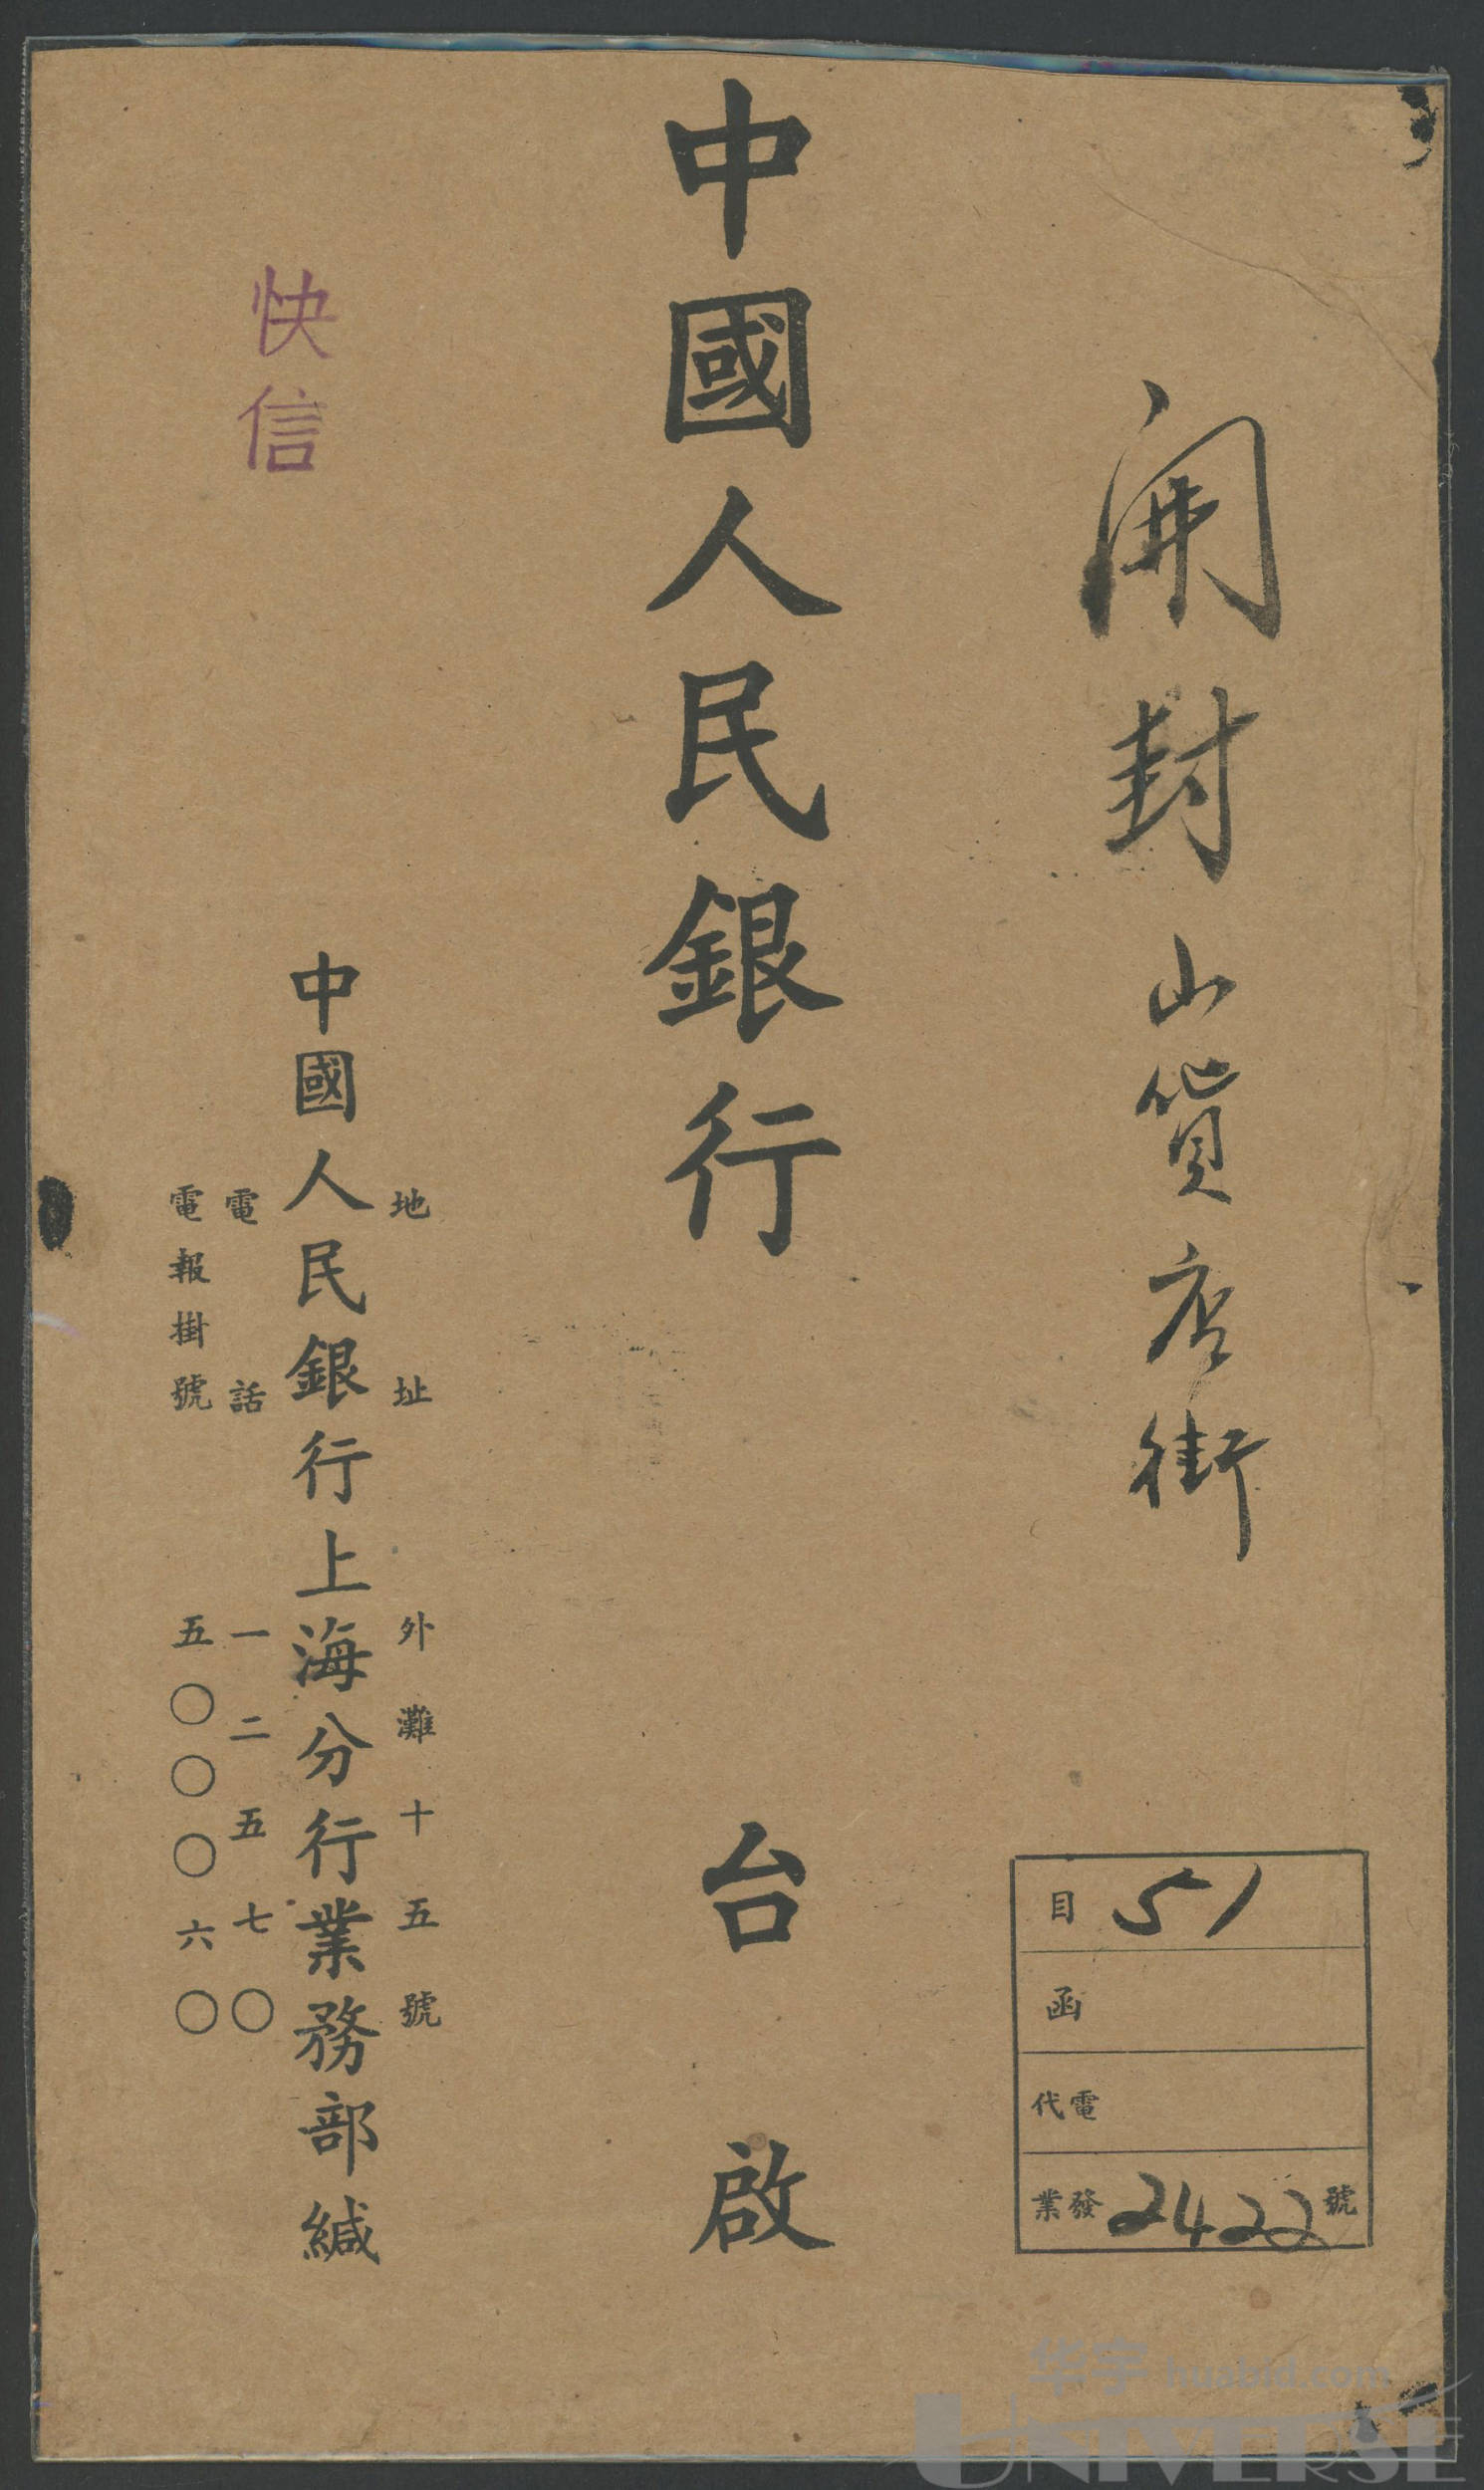 開封山貨店街
中國人民銀行 台啟
地址 外灘十五號
中國人民銀行上海分行業務部緘
電話 一二五七〇
電報掛號 五〇〇〇六〇
快信
目 51
函
代電
業發 2422 號
华宇 huabid.com
UNIVERSE